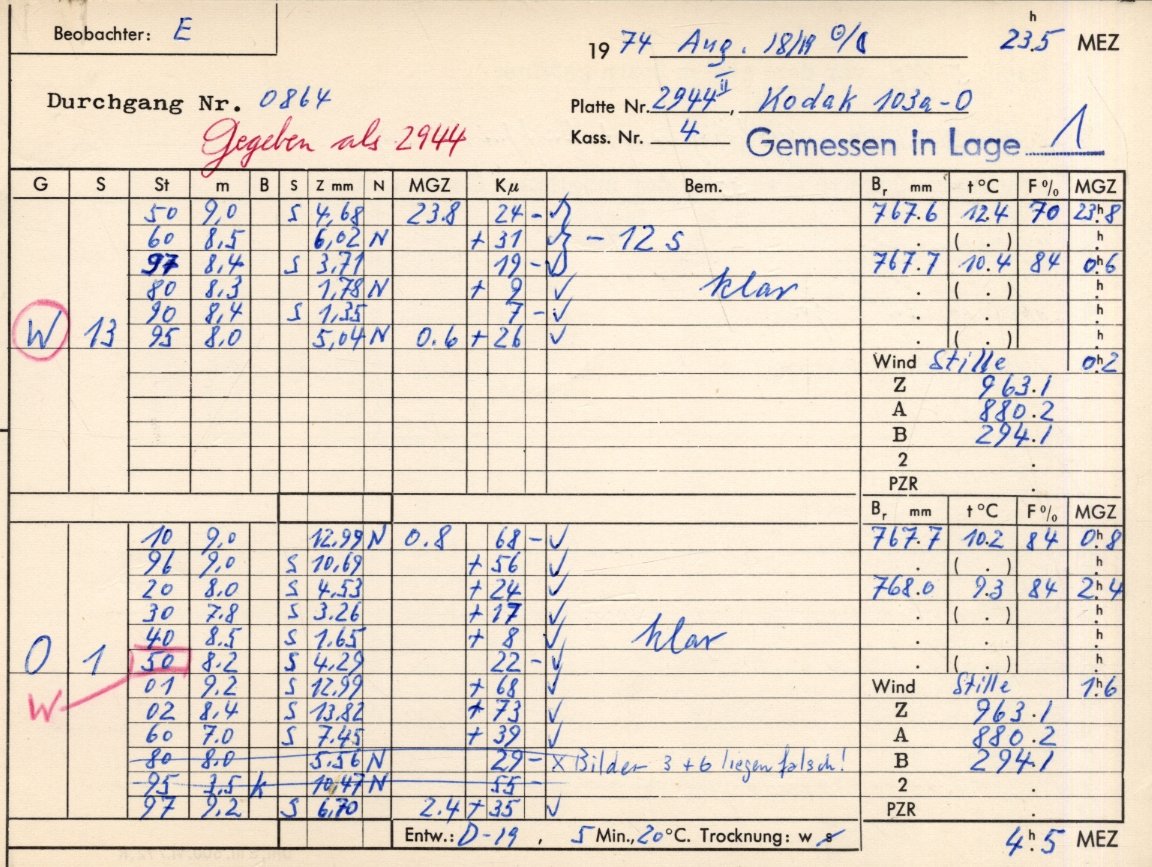 Beobachter: E
1974 Aug. 18/19 23h.5 MEZ
Durchgang Nr. 0864
Platte Nr. 2944 II, Kodak 103a-O
Gegeben als 2944
Kass. Nr. 4 Gemessen in Lage 1
G S St m B S Z mm N MGZ Kμ Bem. Br mm t °C F % MGZ
50 9,0 S 4,68 23.8 24 - √ 767.6 12.4 70 23h.8
60 8,5 6,02 N + 31 √ } - 12 s . ( . ) h
97 8,4 S 3,71 19 - √ 767.7 10.4 84 0h.6
80 8,3 1,78 N + 9 √ klar . ( . ) h
90 8,4 S 1,35 7 - √ . . h
W 13 95 8,0 5,04 N 0.6 + 26 √ . ( . ) h
Wind Stille 0h.2
Z 963.1
A 880.2
B 294.1
2 .
PZR .
Br mm t °C F % MGZ
10 9,0 12,99 N 0.8 68 - √ 767.7 10.2 84 0h.8
96 9,0 S 10,69 + 56 √ . ( . ) h
20 8.0 S 4,53 + 24 √ 768.0 9.3 84 2h.4
30 7.8 S 3.26 + 17 √ . ( . ) h
40 8.5 S 1.65 + 8 √ klar . . h
O 1 50 8.2 S 4.29 22 - √ . ( . ) h
W 01 9.2 S 12,99 + 68 √ Wind Stille 1h.6
02 8,4 S 13,82 + 73 √ Z 963.1
60 7.0 S 7.45 + 39 √ A 880.2
80 8.0 5.56 N 29 - x Bilder 3 + 6 liegen falsch! B 294.1
95 3,5 k 10,47 N 55 - 2 .
97 9,2 S 6,70 2.4 + 35 √ PZR .
Entw.: D-19, 5 Min., 20°C. Trocknung: w s 4h.5 MEZ